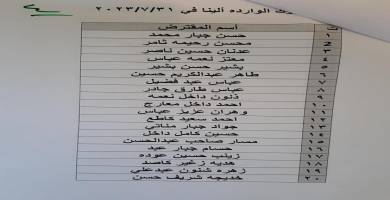 وك الوارده ألينا في ٢٠٢٣/٧/٣١
ت أسم المقترض
١ حسن جبار محمد
٢ محسن رحيمه ثامر
٣ عدنان حسين ناصر
٤ معتز نعمه عباس
٥ بشير حسن بشير
٦ طاهر عبدالكريم حسين
٧ عباس عبد فضيل
٨ عباس طارق جادر
٩ ذنون داخل نعمه
١٠ احمد داخل معارج
١١ وهران عزيز عباس
١٢ احمد سعيد كاطع
١٣ جواد جبار مناتي
١٤ حسين كامل داخل
١٥ مسار صاحب عبدالحسن
١٦ حسام جبار عبد
١٧ زينب حسين عوده
١٨ هديه زغير كاصد
١٩ زهره شنون عبدعلي
٢٠ خديجه شريف حسن